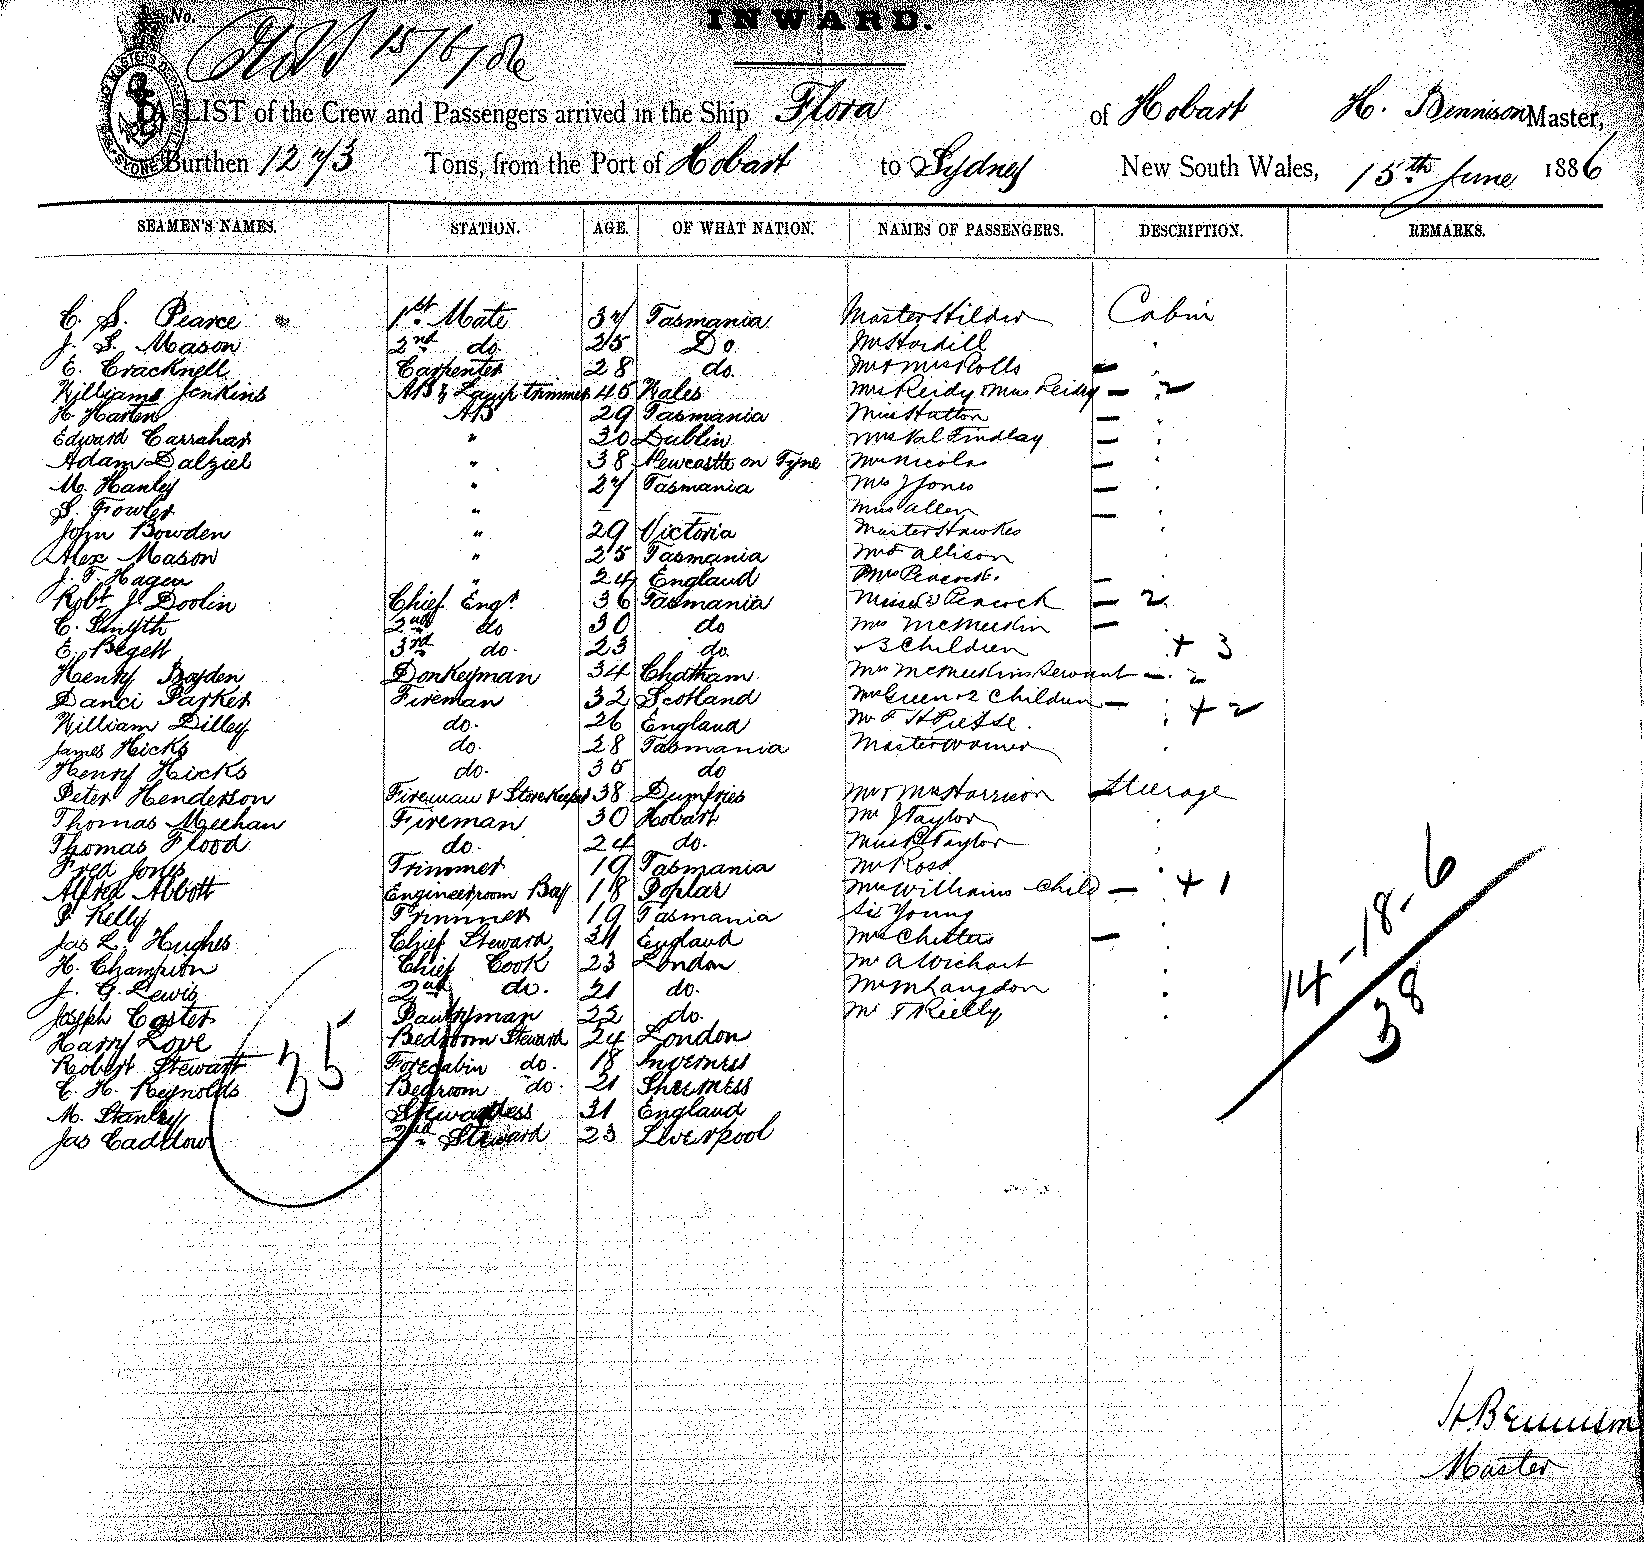 No.
15/6/86
INWARD.
A LIST of the Crew and Passengers arrived in the Ship Flora of Hobart H. Bennison Master,
Burthen 1273 Tons, from the Port of Hobart to Sydney New South Wales, 15th June 1886
SEAMEN'S NAMES. STATION. AGE. OF WHAT NATION. NAMES OF PASSENGERS. DESCRIPTION. REMARKS.
C. S. Pearce 1st Mate 37 Tasmania Master Hilder Cabin
J. S. Mason 2nd do 25 Do Mr Hordill "
E. Cracknell Carpenter 28 do. Mr & Mrs Rolls — "
William Jenkins AB & Lamp trimmer 45 Wales Mrs Reidy & Miss Reidy — " 2
H. Harten AB 29 Tasmania Miss Hatton — "
Edward Carrahar " 30 Dublin Mrs Val Findlay — "
Adam Dalziel " 38 Newcastle on Tyne Mrs Nicolas — "
M. Hanley " 27 Tasmania Mrs J Jones — "
S. Fowler " — Miss Allen — "
John Bowden " 29 Victoria Master Hawkes "
Alex Mason " 25 Tasmania Mr F Allison "
J. T. Hagen " 24 England Mrs Peacock. — "
Robt J. Doolin Chief Engr 36 Tasmania Misses Peacock — 2
C. Smyth 2nd do 30 do Mrs McMeekin —
E. Begett 3rd do. 23 do. & 3 Children + 3
Henry Boyden Donkeyman 34 Chatham Mrs McMeekins Servant — "
Danci Parker Fireman 32 Scotland Mrs Green & 2 Children — " + 2
William Dilley do. 26 England Mr F H Piesse. "
James Hicks do. 28 Tasmania Master Warner "
Henry Hicks do. 35 do
Peter Henderson Fireman & Storekeeper 38 Dumfries Mr & Mrs Harrison Steerage
Thomas Meehan Fireman 30 Hobart Mr J Taylor "
Thomas Flood do. 24 do. Taylor "
Fred Jones Trimmer 19 Tasmania Mr Ross "
Alfred Abbott Engineersroom Boy 18 Poplar Mrs Williams Child — " + 1
P. Kelly Trimmer 19 Tasmania Young "
Jas L. Hughes Chief Steward 31 England Mrs Chisters — "
H. Champion Chief Cook 23 London Mr A Wichart "
J. G. Lewis 2nd do. 21 do. Mr M Langdon "
Joseph Coster Pantryman 22 do. Mr T Rielly "
Harry Love Bedroom Steward 24 London
Robert Stewart Forecabin do. 18 Inverness
C. H. Reynolds Bedroom do. 21 Sheerness
M. Stanley Stewardess 31 England
Jas Caddow 2nd Steward 23 Liverpool
35
14-18-6
38
H. Bennison
Master